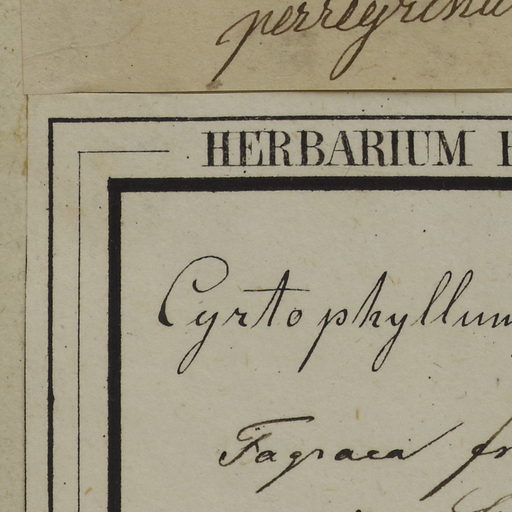 perregrinu
HERBARIUM
Cyrtophyllum
Fagraea fr